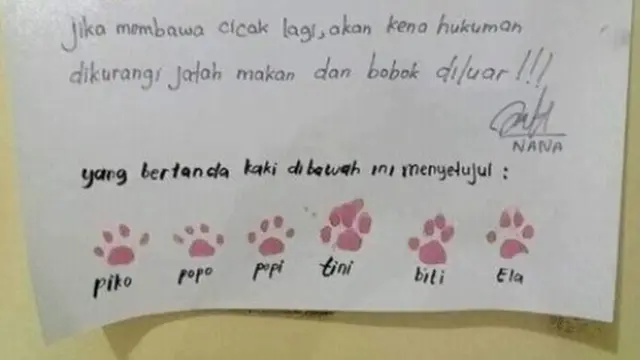 jika membawa cicak lagi, akan kena hukuman
dikurangi jatah makan dan bobok diluar!!!
NANA
yang bertanda kaki dibawah ini menyetujui :
piko popo popi tini bili Ela